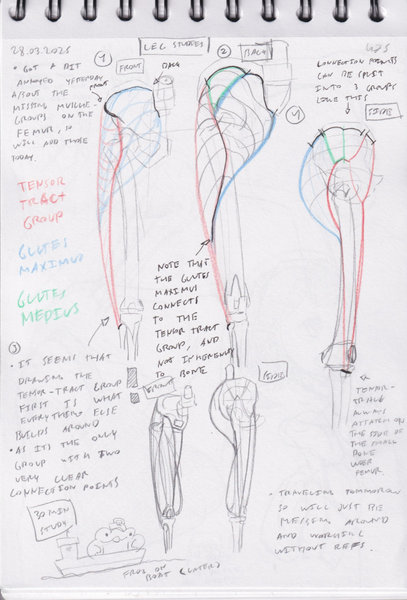 28.03.2025
LEG STUDIES
1
FRONT
BACK
2
BACK
• GOT A BIT
ANNOYED YESTERDAY
ABOUT THE
MISSING MUSCLE-
GROUPS ON THE
FEMUR, SO
WILL ADD THOSE
TODAY.
FRONT
CONNECTION POINTS
CAN BE SPLIT
INTO 3 GROUPS
LIKE THIS
SIDE
4
TENSOR
TRACT
GROUP
GLUTES
MAXIMUS
GLUTES
MEDIUS
NOTE THAT
THE GLUTES
MAXIMUS
CONNECTS
TO THE
TENSOR TRACT
GROUP, AND
NOT INHERENTLY
TO BONE
3
• IT SEEMS THAT
DRAWING THE
TENSOR-TRACT GROUP
FIRST IS WHAT
EVERYTHING ELSE
BUILDS AROUND
• AS IT'S THE ONLY
GROUP WITH TWO
VERY CLEAR
CONNECTION POINTS
FRONT
SIDE
TENSOR-
TRACT
ALWAYS
ATTATCH ON
THE SIDE OF
THE SMALL
BONE
FEMUR.
30 MIN
STUDY
FROG ON
BOAT
- TRAVELING TOMMORROW
SO WILL JUST BE
MESSING AROUND
AND WORKING
WITHOUT REFS.